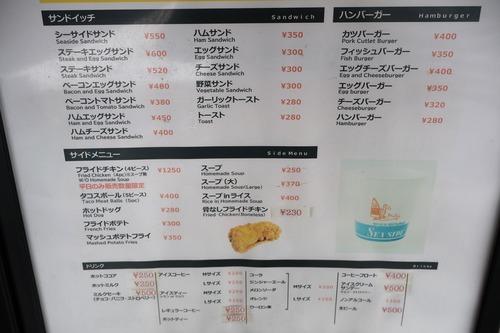 サンドイッチ Sandwich
シーサイドサンド ¥550
Seaside Sandwich
ステーキエッグサンド ¥600
Steak and Egg Sandwich
ステーキサンド ¥520
Steak Sandwich
ベーコンエッグサンド ¥480
Bacon and Egg Sandwich
ベーコントマトサンド ¥380
Bacon and Tomato Sandwich
ハムエッグサンド ¥450
Ham and Egg Sandwich
ハムチーズサンド ¥400
Ham and Cheese Sandwich
ハムサンド ¥350
Ham Sandwich
エッグサンド ¥300
Egg Sandwich
チーズサンド ¥300
Cheese Sandwich
野菜サンド ¥300
Vegetable Sandwich
ガーリックトースト ¥280
Garlic Toast
トースト ¥280
Toast
ハンバーガー Hamburger
カツバーガー ¥400
Pork Cutlet Burger
フィッシュバーガー ¥350
Fish Burger
エッグチーズバーガー ¥400
Egg and Cheeseburger
エッグバーガー ¥350
Egg burger
チーズバーガー ¥320
Cheeseburger
ハンバーガー ¥280
Hamburger
サイドメニュー SideMenu
フライドチキン (4ピース) ¥1250
Fried Chicken (4pc)※スープ無
W/O Homemade Soup
平日のみ販売数量限定
タコスボール (5ピース) ¥400
Taco Meat Balls (5pc)
ホットドッグ ¥280
Hot Dog
フライドポテト ¥300
French Fries
マッシュポテトフライ ¥350
Mashed Potato Fries
スープ ¥250
Homemade Soup
スープ (大) ¥370
Homemade Soup(Large)
スープ in ライス ¥400
Rice in Homemade Soup
骨なしフライドチキン ¥230
Fried Chicken(Boneless)
SEA SIDE
ドリンク Drinks
ホットココア ¥250
ホットミルク ¥250
ミルクセーキ ¥500
(チョコ・バニラ・ストロベリー)
アイスコーヒー Mサイズ
Lサイズ
アイスティー Mサイズ
Lサイズ
レギュラーコーヒー ¥250
ホットティー ¥250
コーラ
ジンジャーエール
メロンソーダ
オレンジ
ウーロン茶
Mサイズ
Lサイズ
コーヒーフロート ¥400
アイスクリーム
サンデー ¥500
ノンアルコール
生ビール ¥500